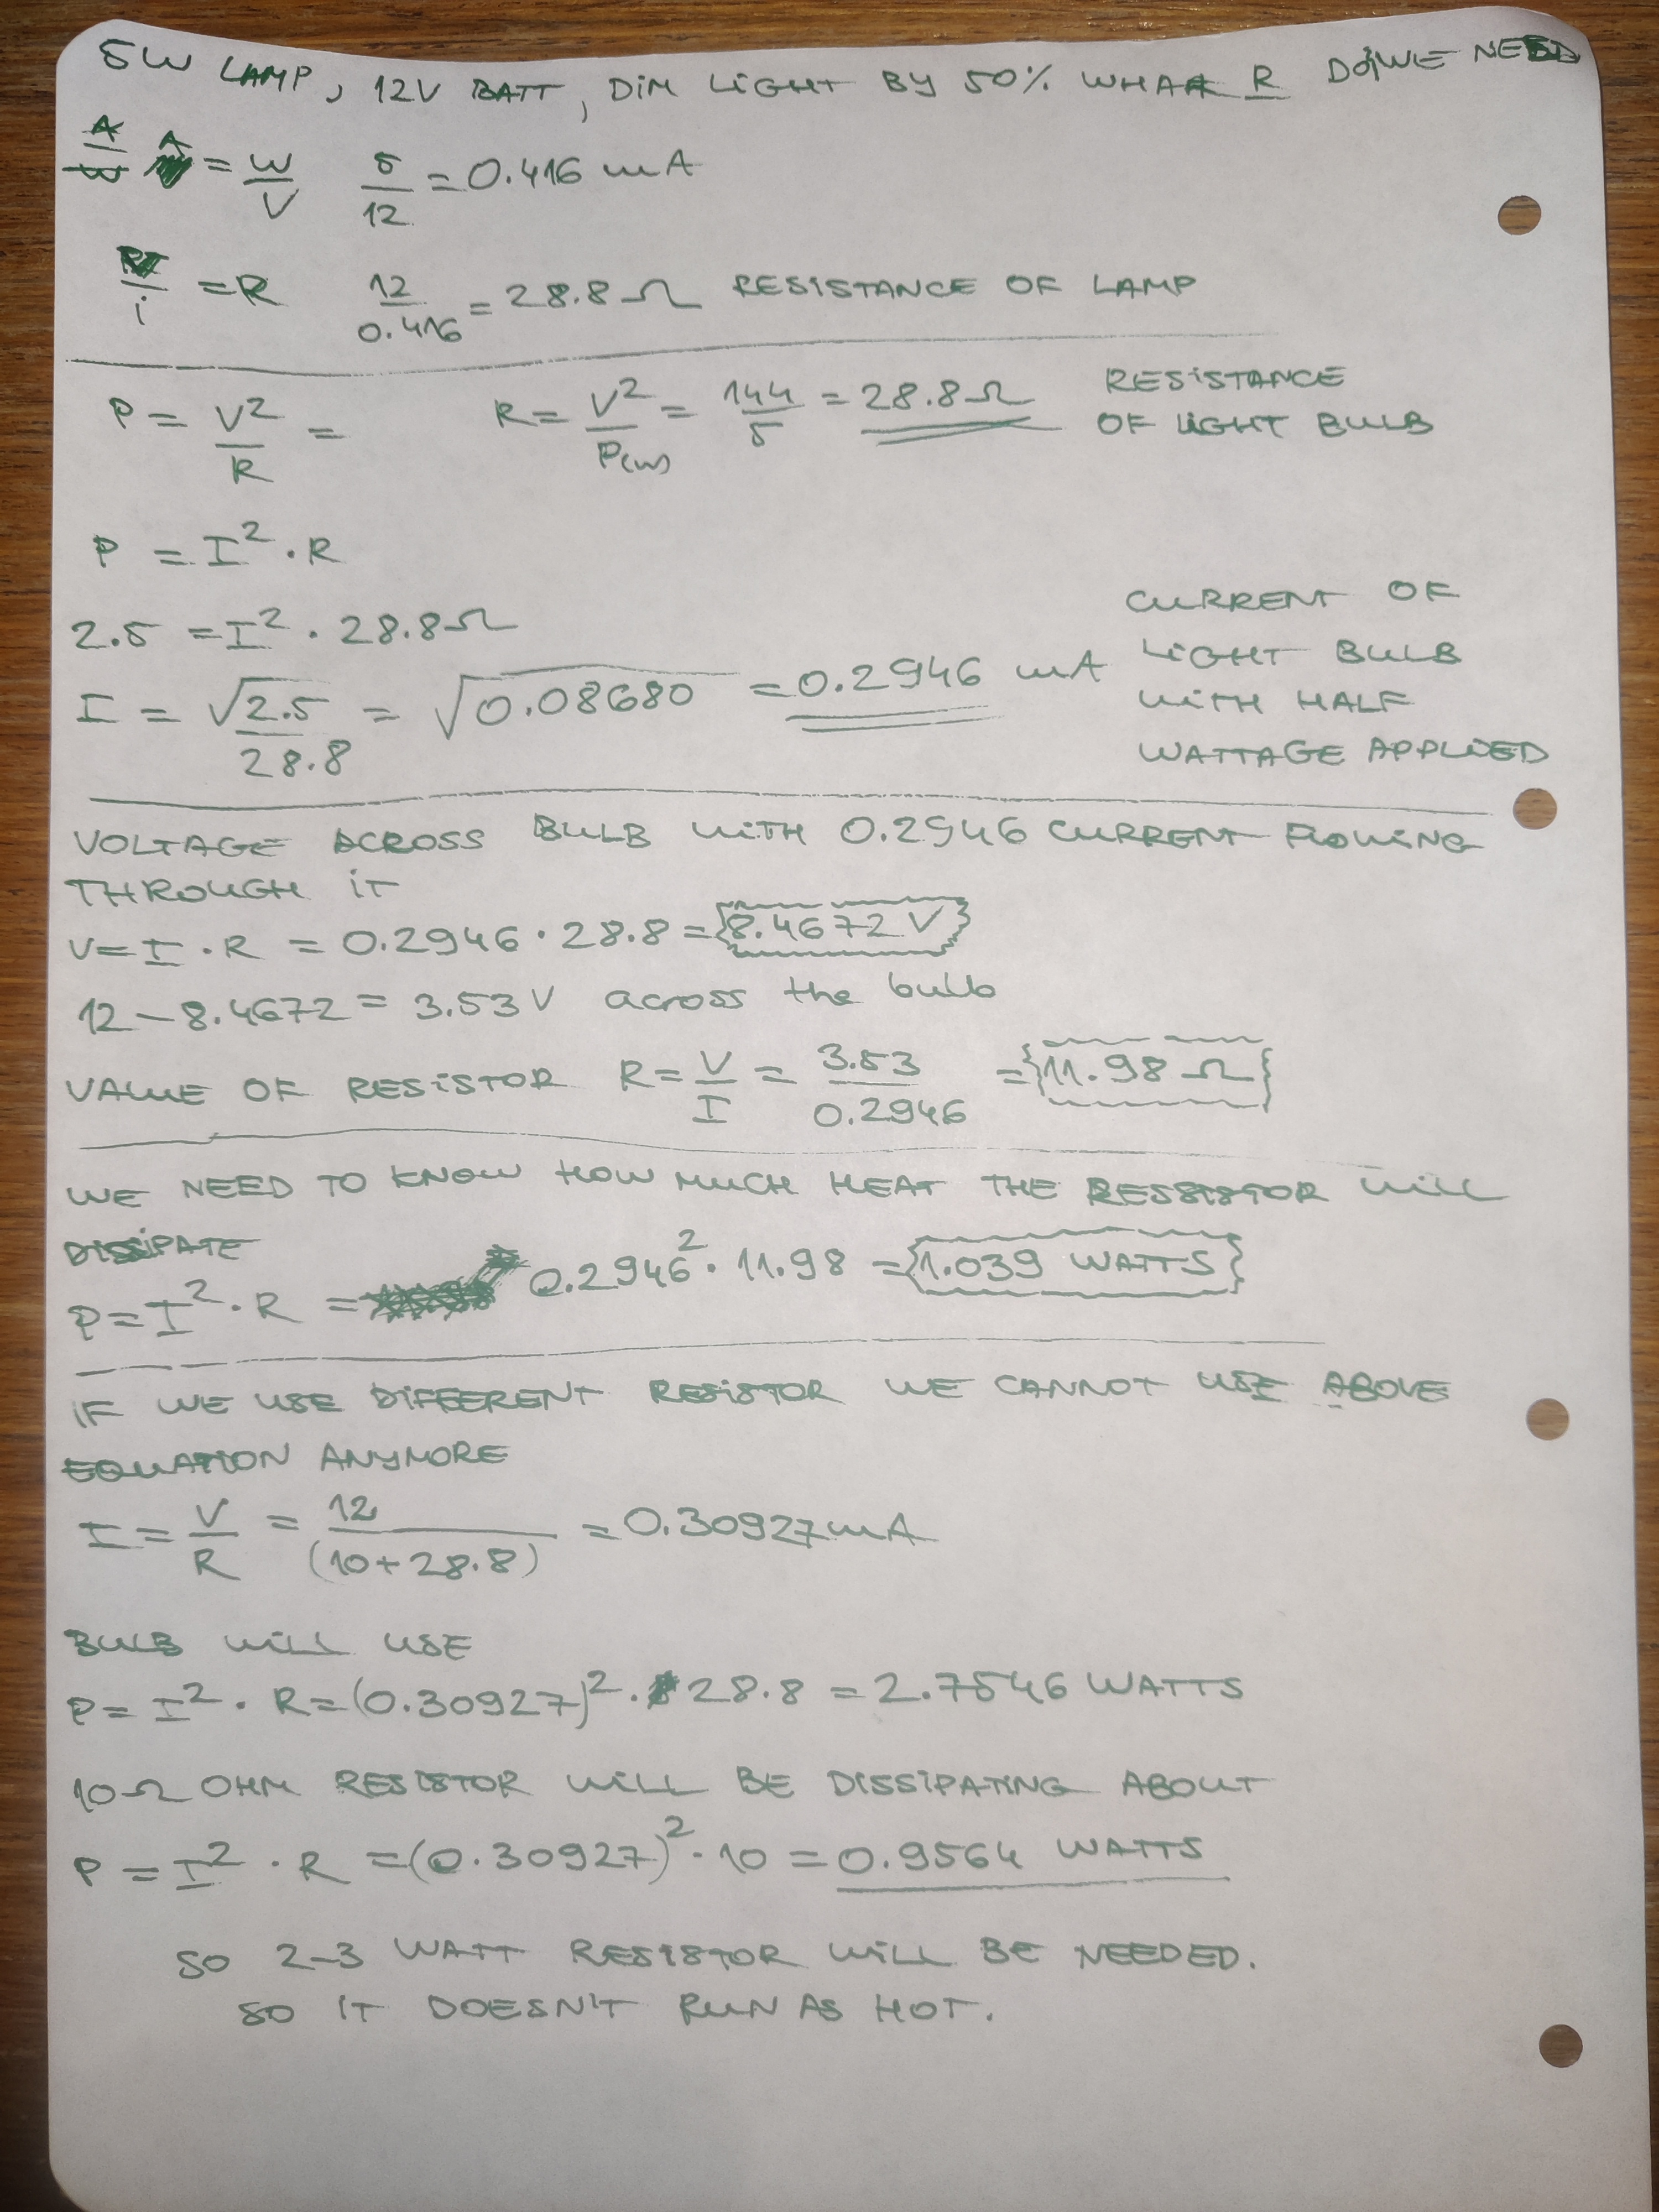 5W LAMP, 12V BATT, DIM LIGHT BY 50% WHAT R DO WE NEED
A/W A = W/V 5/12 = 0.416 mA
V/i = R 12/0.416 = 28.8 Ω RESISTANCE OF LAMP
P = V²/R = R = V²/P(W) = 144/5 = 28.8 Ω RESISTANCE OF LIGHT BULB
P = I² · R
2.5 = I² · 28.8 Ω
I = √2.5/28.8 = √0.08680 = 0.2946 mA CURRENT OF LIGHT BULB WITH HALF WATTAGE APPLIED
VOLTAGE ACROSS BULB WITH 0.2946 CURRENT FLOWING
THROUGH IT
V = I · R = 0.2946 · 28.8 = {8.4672 V}
12 – 8.4672 = 3.53 V across the bulb
VALUE OF RESISTOR R = V/I = 3.53/0.2946 = {11.98 Ω}
WE NEED TO KNOW HOW MUCH HEAT THE RESSISTOR WILL
DISSIPATE
P = I² · R = 0.2946² · 11.98 = {1.039 WATTS}
IF WE USE DIFFERENT RESISTOR WE CANNOT USE ABOVE
EQUATION ANYMORE
I = V/R = 12/(10+28.8) = 0.30927 mA
BULB WILL USE
P = I² · R = (0.30927)² · 28.8 = 2.7546 WATTS
10 Ω OHM RESISTOR WILL BE DISSIPATING ABOUT
P = I² · R = (0.30927)² · 10 = 0.9564 WATTS
SO 2–3 WATT RESISTOR WILL BE NEEDED.
SO IT DOESN'T RUN AS HOT.